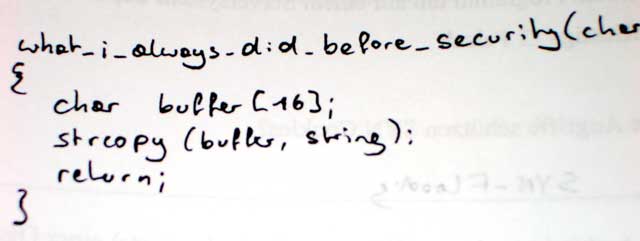 what_i_always_did_before_security(char
{
char buffer[16];
strcopy (buffer, string);
return;
}